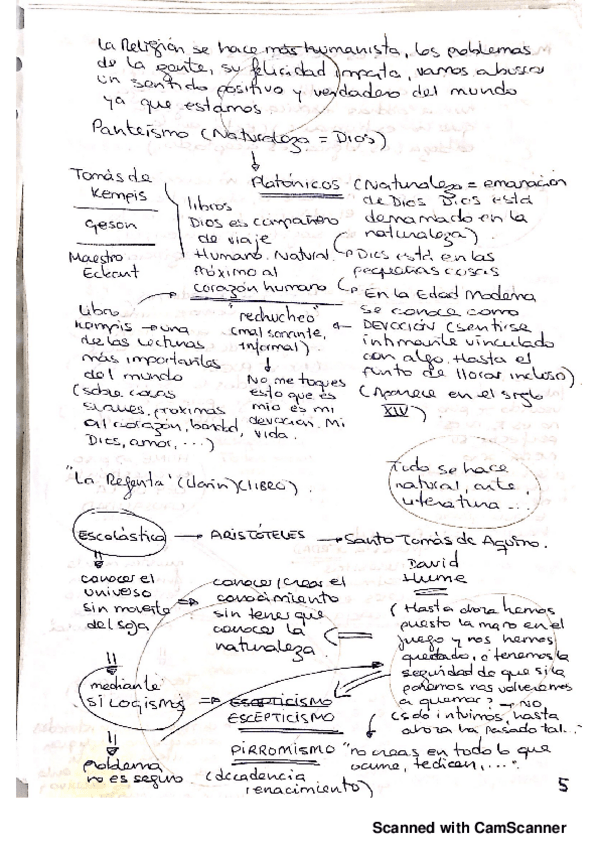 La Religión se hace más humanista, los problemas
de la gente, su felicidad importa, vamos a buscar
un sentido positivo y verdadero del mundo
ya que estamos.
Panteísmo (Naturaleza = Dios)
Tomás de
Kempis
Geson
Maestro
Eckart
libros
Dios es compañero
de viaje
Humano. Natural.
Próximo al
corazón humano
Platónicos (Naturaleza = emanación
de Dios Dios está
derramado en la
naturaleza)
Dios está en las
pequeñas cosas
En la Edad Moderna
se conoce como
DEVOCIÓN (sentirse
íntimamente vinculado
con algo. Hasta el
punto de llorar incluso)
(Aparece en el siglo
XIV)
Libro
Kempis → una
de las lecturas
más importantes
del mundo
(sobre cosas
suaves, próximas
al corazón, bondad,
Dios, amor, ...)
"rechucheo"
(mal sonante,
informal)
No me toques
esto que es
mío es mi
devoción. Mi
vida.
"La Regenta" (Clarín) (LIBRO).
Todo se hace
natural, arte,
literatura...
Escolástica → ARISTÓTELES → Santo Tomás de Aquino.
conocer el
universo
sin moverte
del
conocer/crear el
conocimiento
sin tener que
conocer la
naturaleza
David
Hume
(Hasta ahora hemos
puesto la mano en el
fuego y nos hemos
quemado, ¿tenemos la
seguridad de que si la
ponemos nos volveremos
a quemar? → NO
(solo intuimos, hasta
ahora ha pasado tal..."
mediante
SILOGISMOS
ESCEPTICISMO
ESCEPTICISMO
PIRROMISMO "no creas en todo lo que
ocurre, te dicen, ...."
(decadencia
renacimiento)
problema
no es seguro.
5
Scanned with CamScanner